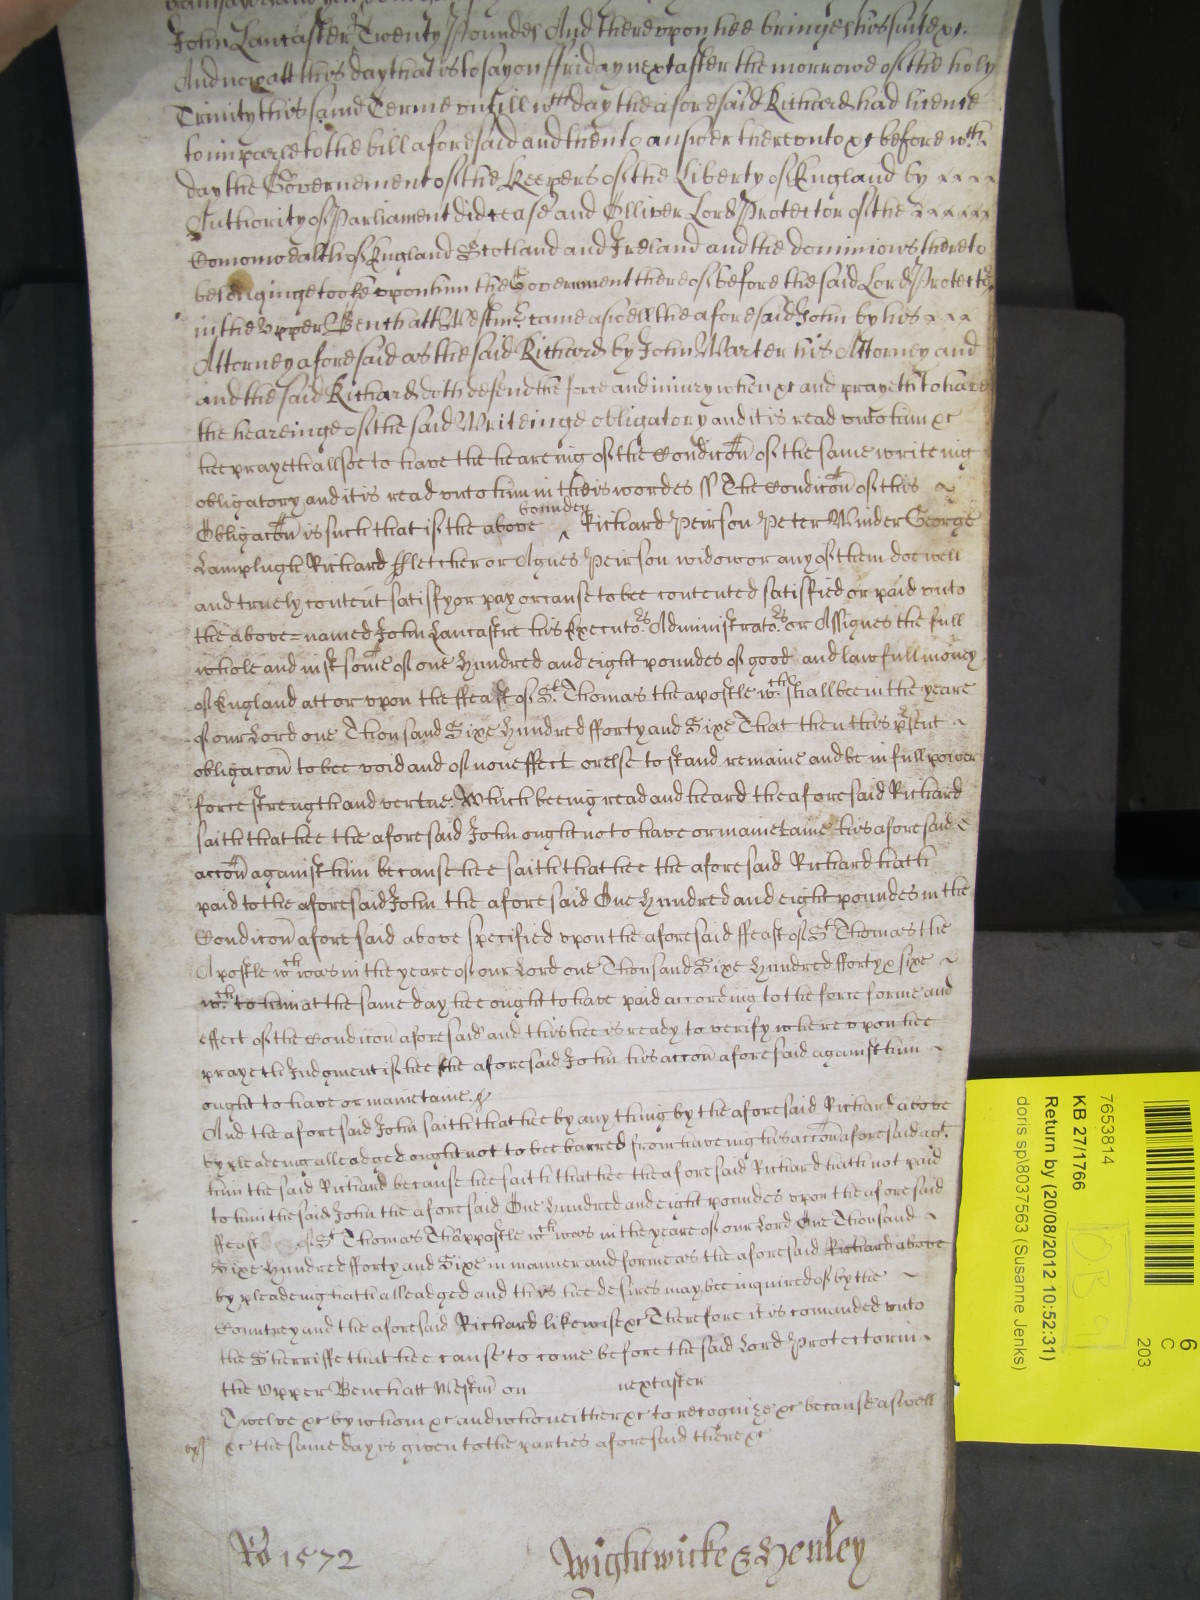 John Lancaster Twenty Poundes And thereupon hee bringes his suite xc.
And now att this day that is to say on ffriday next after the morrowe of the holy
Trinity this same Terme untill wch day the aforesaid Richard had licence
to imparle to the bill aforesaid and then to answer thereonto xc before wch
day the Governement of the Keepers of the Liberty of England by
Authority of Parliament did cease and Olliver Lord Protector of the
Comonwealth of England Scotland and Ireland and the dominions thereto
belonginge tooke upon him the Government thereof before the said Lord Protector
in the Upper Bench att Westmr. came aswell the aforesaid John by his
Attorney aforesaid as the said Richard by John Warter his Attorney and
and the said Richard doth defend the force and iniury when xc and prayeth to have
the heareinge of the said Writeinge obligatory and it is read unto him xc
hee prayeth allsoe to have the heareing of the Condicon of the same writeing
obligatory and it is read unto him in theis wordes ss The Condicon of this
Obligacon is such that if the above ^ bounden Richard Peirson Peter Winder George
Lamplugh Richard ffletcher or Agnes Peirson widow or any of them doe well
and truely content satisfy or pay or cause to bee contented satisfied or paid unto
the above=named John Lancastre his Executors. Administrators. or Assignes the full
whole and iust some of one Hundred and eight poundes of good and lawfull money
of England att or upon the ffeast of St. Thomas the apostle wch. shall bee in the yeare
of our Lord one Thousand Sixe Hundred fforty and Sixe That then this psent
obligacon to bee void and of non effect or else to stand remaine and be in full power
force strength and vertue. Which beeing read and heard the aforesaid Richard
saith that hee the aforesaid John ought not to have or mainetaine his aforesaid
accon against him because hee saith that hee the aforesaid Richard hath
paid to the aforesaid John the aforesaid One Hundred and eight poundes in the
Condicon aforesaid above specified upon the aforesaid ffeast of St Thomas the
Apostle wch was in the yeare of our Lord one Thousand Sixe Hundred fforty & sixe
wch. to him at the same day hee ought to have paid according to the force forme and
effect of the Condicon aforesaid and this hee is ready to verify whereupon hee
prayeth Iudgment if hee the aforesaid John his accon aforesaid against him
ought to have or mainetaine.
And the aforesaid John saith that hee by any thing by the aforesaid Richard above
by pleadeing alleadged ought not to bee barred from haveing his accon aforesaid agt.
him the said Richard because hee saith that hee the aforesaid Richard hath not paid
to him the said John the aforesaid One Hundred and eight poundes upon the aforesaid
ffeast of St Thomas Thappostle wch was in the yeare of our Lord One Thousand
Sixe Hundred fforty and Sixe in manner and forme as the aforesaid Richard above
by pleadeing hath alleadged and this hee desires may bee inquired of by the
Countrey and the aforesaid Richard likewise xc Therefore it is comanded unto
the Sherriffe that hee cause to come before the said Lord Protector in
the Upper Bench att Westm on next after
Twelve xc by whom xc and who neither xc to recognize xc because aswell
xc the same day is given to the parties aforesaid there xc
Ro 1572 Wightwicke & Henley
6
C
203
7653814
KB 27/1766
Return by (20/08/2012 10:52:31)
doris sp\8037563 (Susanne Jenks)